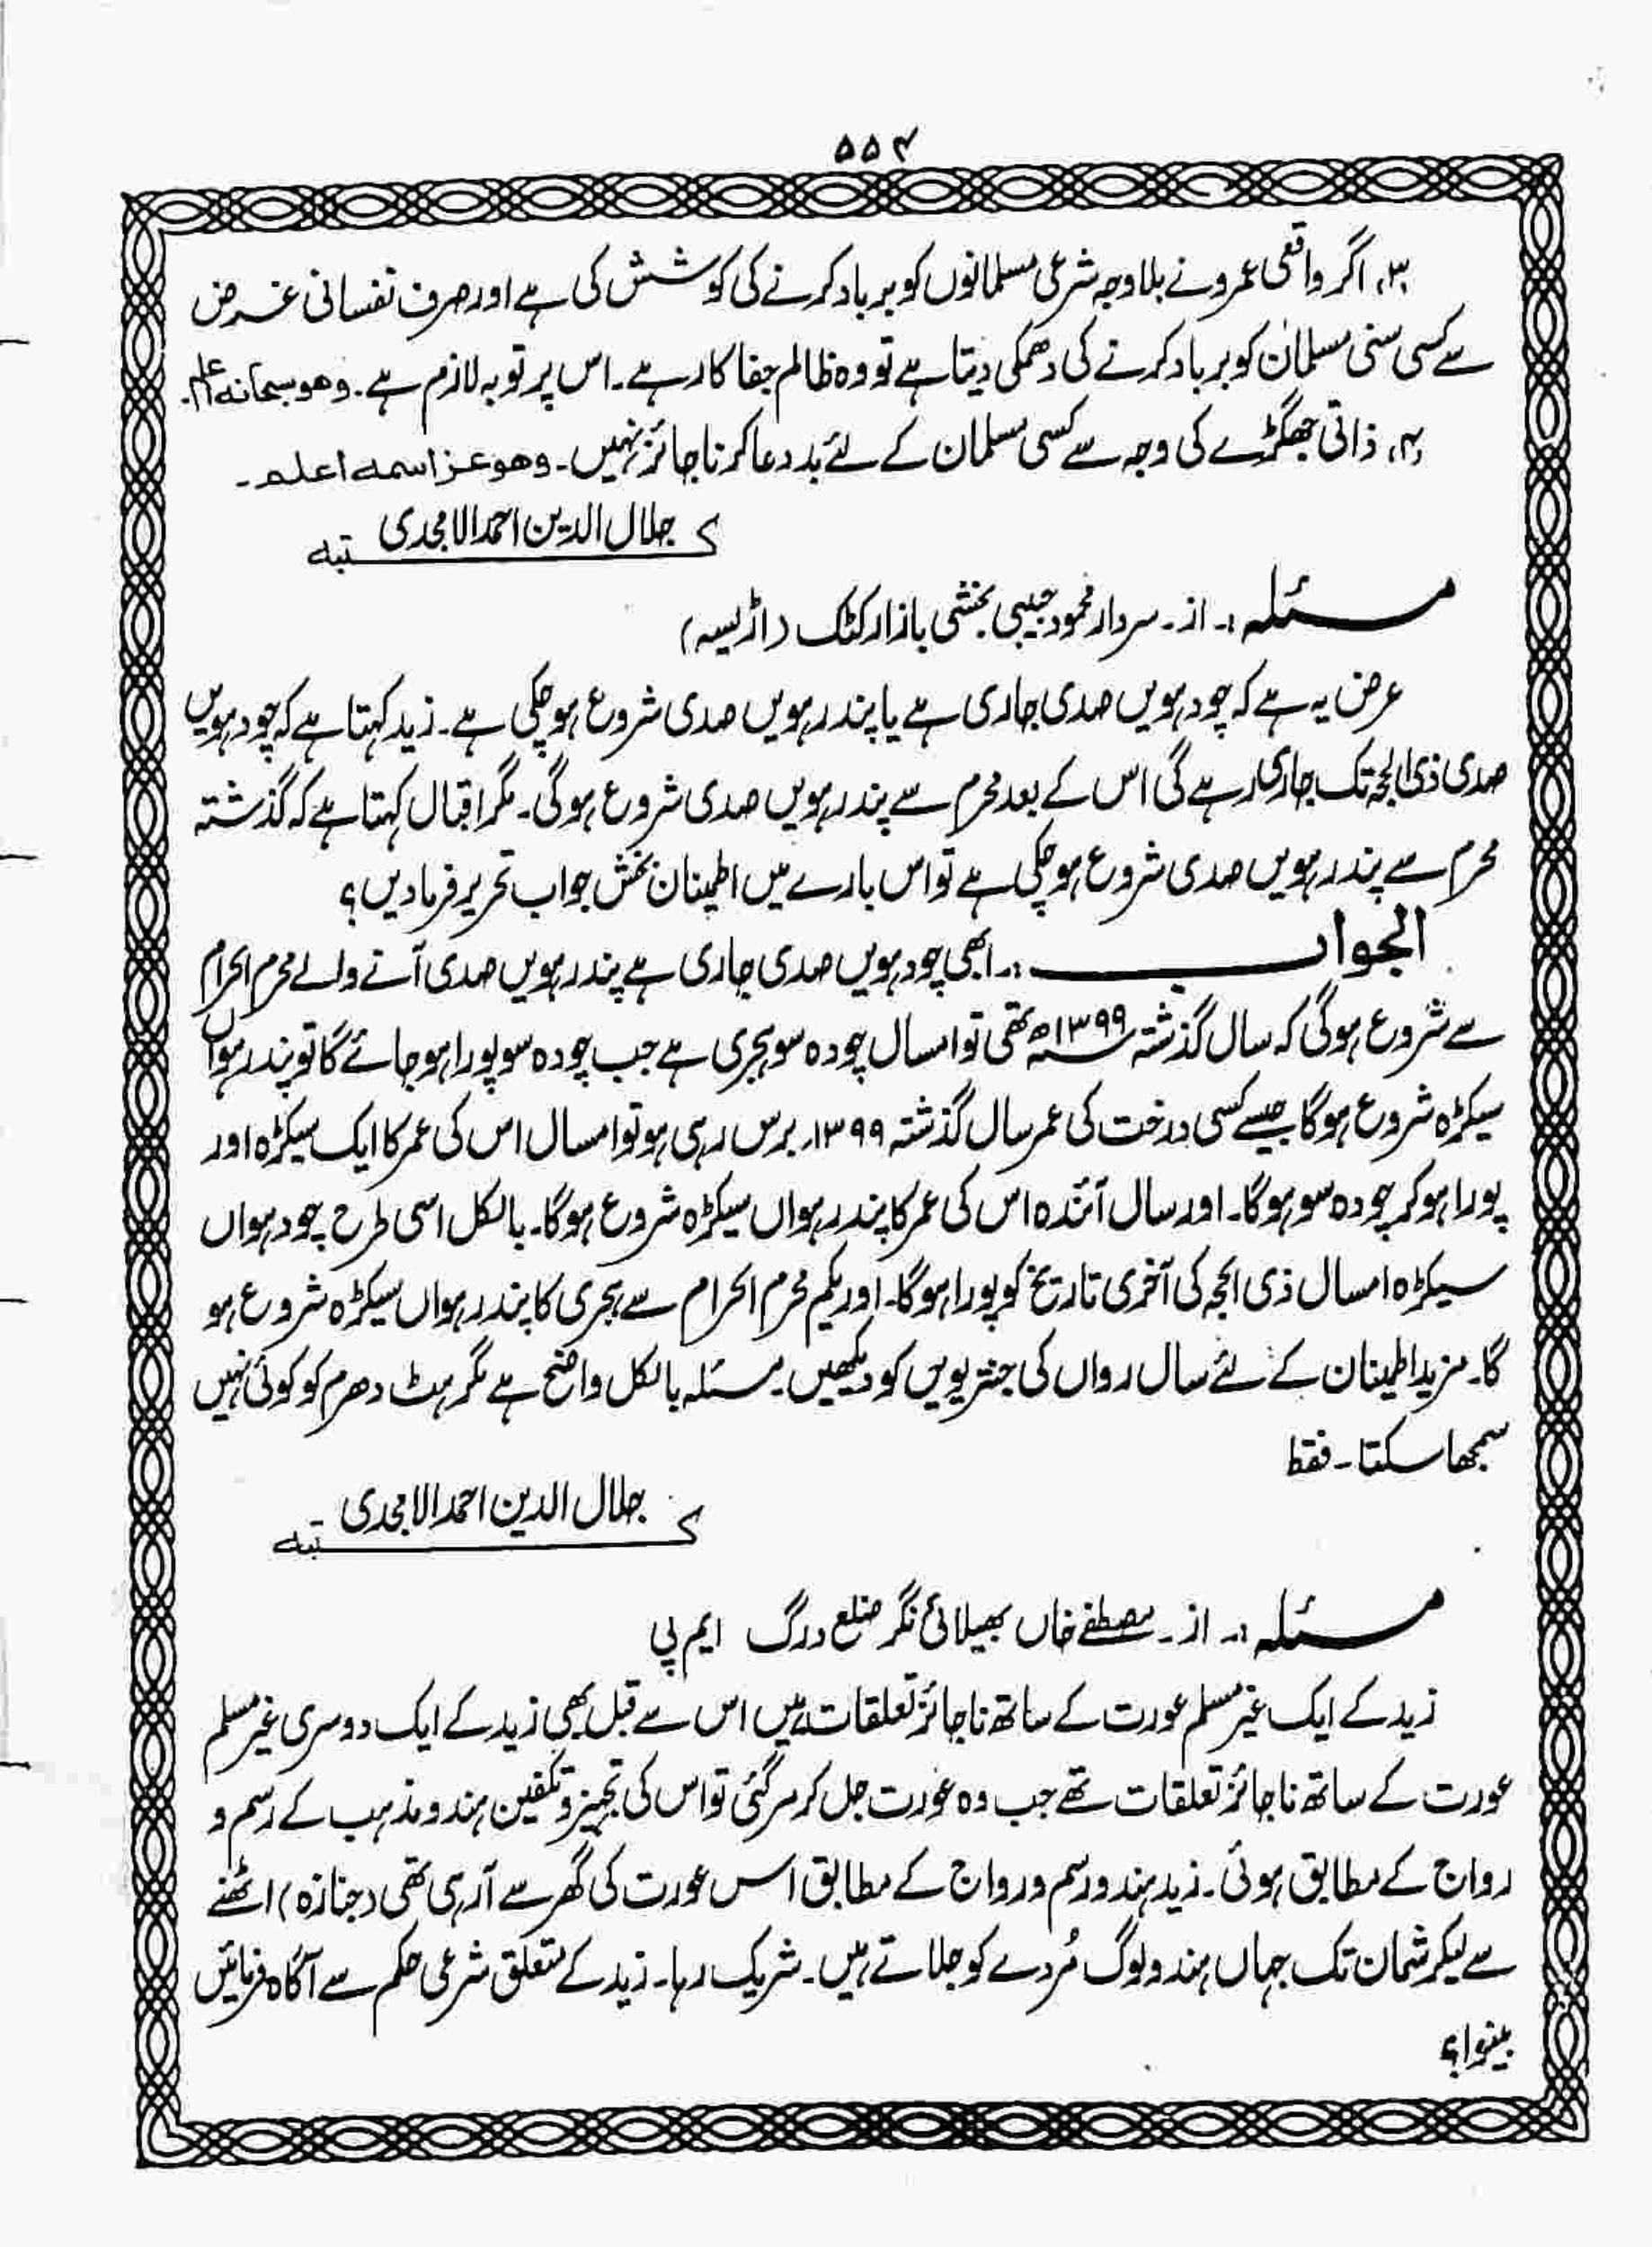 ۵۵۴
(۳) اگر واقعی عمرو نے بلاوجہ شرعی مسلمانوں کو برباد کرنے کی کوشش کی ہے اور صرف نفسانی غرض
سے کسی سنی مسلمان کو برباد کرنے کی دھمکی دیتا ہے تو وہ ظالم جفا کار ہے۔ اس پر توبہ لازم ہے۔ وھو سبحانہ اعلم۔
(۴) ذاتی جھگڑے کی وجہ سے کسی مسلمان کے لئے بددعا کرنا جائز نہیں۔ وھو عز اسمہ اعلم۔
کتبہ جلال الدین احمد الامجدی
مسئلہ :۔ از۔ سردار محمود حبیبی بخشی بازار کٹک (اڑیسہ)
عرض یہ ہے کہ چودہویں صدی جاری ہے یا پندرہویں صدی شروع ہوچکی ہے۔ زید کہتا ہے کہ چودہویں
صدی ذی الحجہ تک جاری رہے گی اس کے بعد محرم سے پندرہویں صدی شروع ہوگی۔ مگر اقبال کہتا ہے کہ گذشتہ
محرم سے پندرہویں صدی شروع ہوچکی ہے تو اس بارے میں اطمینان بخش جواب تحریر فرمادیں؟
الجواب :۔ ابھی چودہویں صدی جاری ہے پندرہویں صدی آنے والے محرم الحرام
سے شروع ہوگی کہ سال گذشتہ ۱۳۹۹ھ تھی تو امسال چودہ سو ہجری ہے جب چودہ سو پورا ہوجائے گا تو پندرہواں
سیکڑہ شروع ہوگا جیسے کسی درخت کی عمر سال گذشتہ ۱۳۹۹ برس رہی ہو تو امسال اس کی عمر کا ایک سیکڑہ اور
پورا ہوکر چودہ سو ہوگا۔ اور سال آئندہ اس کی عمر کا پندرہواں سیکڑہ شروع ہوگا۔ بالکل اسی طرح چودہواں
سیکڑہ امسال ذی الحجہ کی آخری تاریخ کو پورا ہوگا۔ اور یکم محرم الحرام سے ہجری کا پندرہواں سیکڑہ شروع ہو
گا۔ مزید اطمینان کے لئے سال رواں کی جنتریویں کو دیکھیں۔ مسئلہ بالکل واضح ہے مگر ہٹ دھرم کو کوئی نہیں
سمجھا سکتا۔ فقط
کتبہ جلال الدین احمد الامجدی
مسئلہ :۔ از۔ مصطفےٰ خاں بھیلائی نگر ضلع درگ ایم پی
زید کے ایک غیر مسلم عورت کے ساتھ ناجائز تعلقات ہیں اس سے قبل بھی زید کے ایک دوسری غیر مسلم
عورت کے ساتھ ناجائز تعلقات تھے جب وہ عورت جل کر مرگئی تو اس کی تجہیز و تکفین ہندو مذہب کے رسم و
رواج کے مطابق ہوئی۔ زید ہندو رسم و رواج کے مطابق اس عورت کی گھر سے آرہی تھی (جنازہ) اٹھنے
سے لیکر شمان تک جہاں ہندو لوگ مُردے کو جلاتے ہیں۔ شریک رہا۔ زید کے متعلق شرعی حکم سے آگاہ فرمائیں
بینوا؟